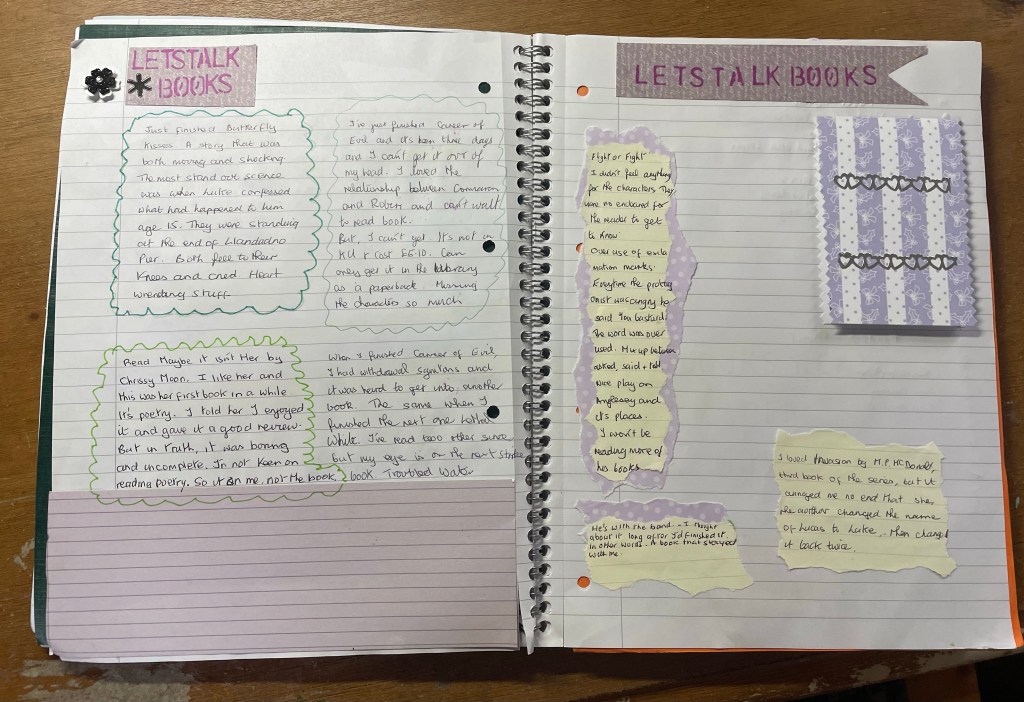 LETSTALK
BOOKS
Just finished Butterfly
Kisses. A story that was
both moving and shocking
The most stand out science
was when Luke confessed
what had happened to him
age 15. They were standing
at the end of Llandudno
Pier. Both fell to their
Knees and cried. Heart
wrenching stuff
I've just finished Career of
Evil and it's been three days
and I can't get it out of
my head. I loved the
relationship between Cormoran
and Robin and can't wait
to read book.
But, I can't get. It's not on
KU + cost £6.10. Can
only get it in the library
as a paperback. Missing
the characters so much
Read Maybe it isn't Her by
Chrissy Moon. I like her and
this was her first book in a while
It's poetry. I told her I enjoyed
it and gave it a good review.
But in truth, it was boring
and uncomplete. I'm not Keen on
reading poetry. So it on me, not the book.
When I finished Career of Evil,
I had withdrawal symptoms and
it was hard to get into another
book. The same when I
finished the next one Lethal
White. I've read two other since
but my eye is on the next Strike
book. Troubled
LETSTALK BOOKS
Flight or Fight
I didn't feel anything
for the characters. They
were no endeared for
the reader to get
to know.
Over use of excla
mation marks.
Everytime the protag
onist was angry he
said You bastard.
The word was over
used. Mix up between
asked, said + tell
Nice play on
Anglesey and
it's places.
I won't be
reading more of
his books
He's with the band. - I thought
about it long after I'd finished it.
In other words. A book that stayed
with me.
I loved Invasion by M.P. McDonald,
third book of the series, but it
annoyed me no end that she,
the author changed the name
of Lucas to Luke, then changed
it back twice.